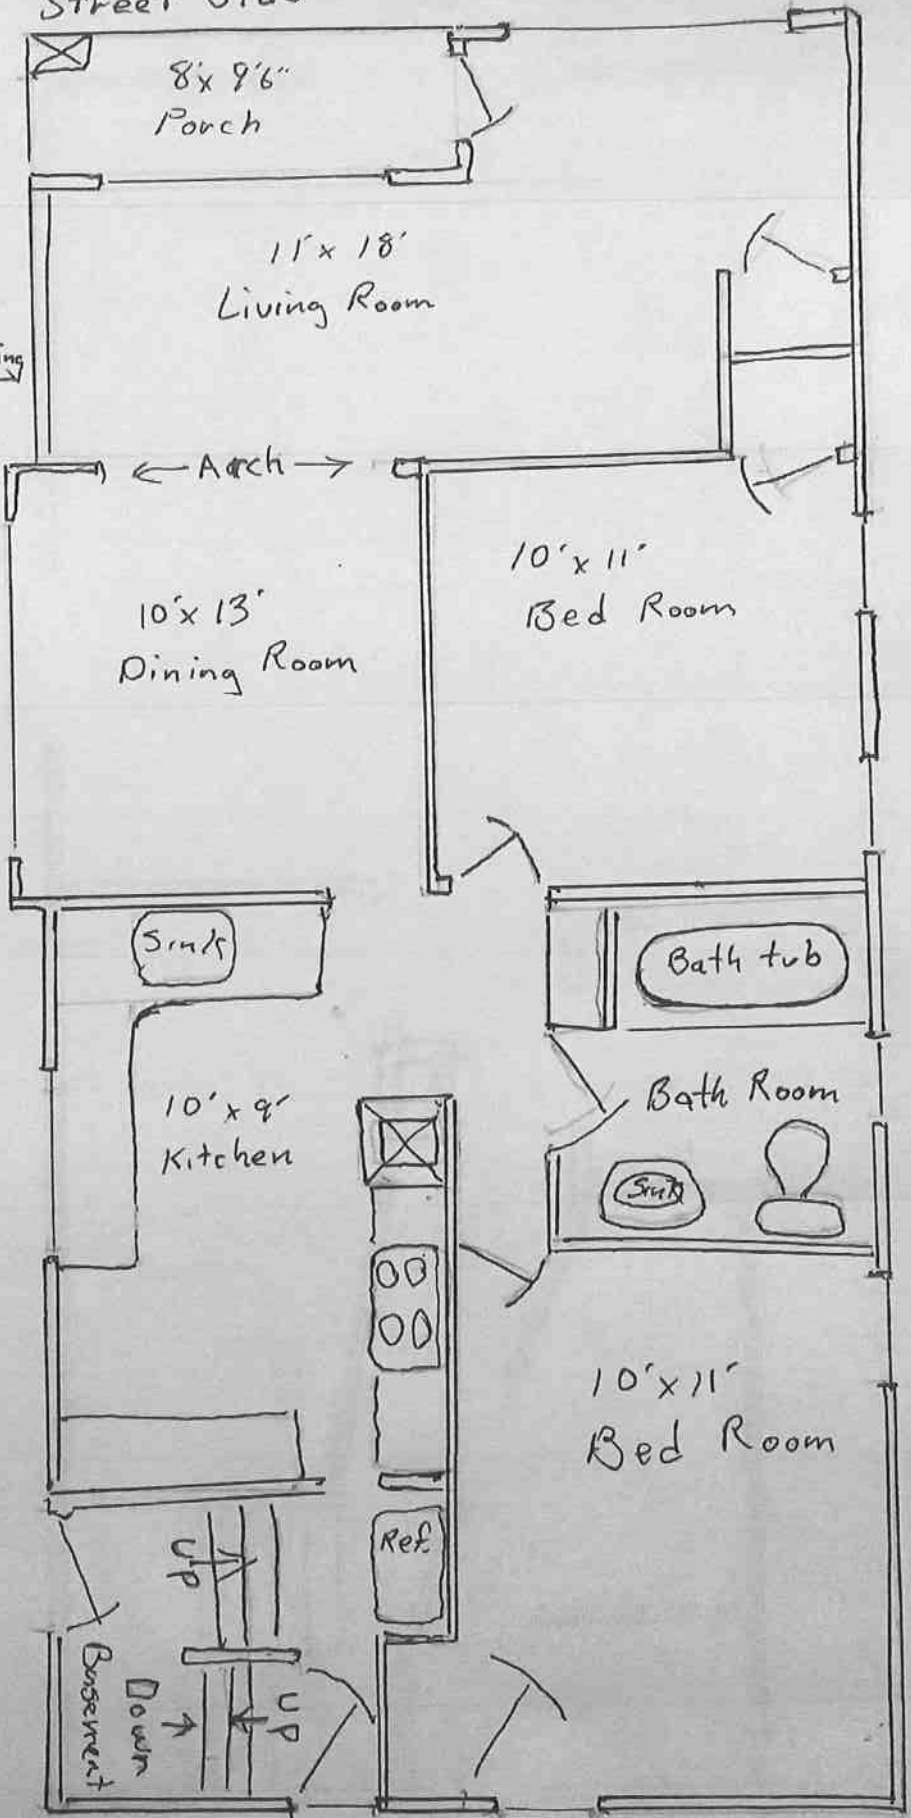 Street
8'x 9'6"
Porch
11'x 18'
Living Room
← Arch →
10'x 13'
Dining Room
10'x 11'
Bed Room
Sink
Bath tub
10'x 9'
Kitchen
Bath Room
Sink
10'x 11'
Bed Room
Ref.
Up
Up
Down
Basement